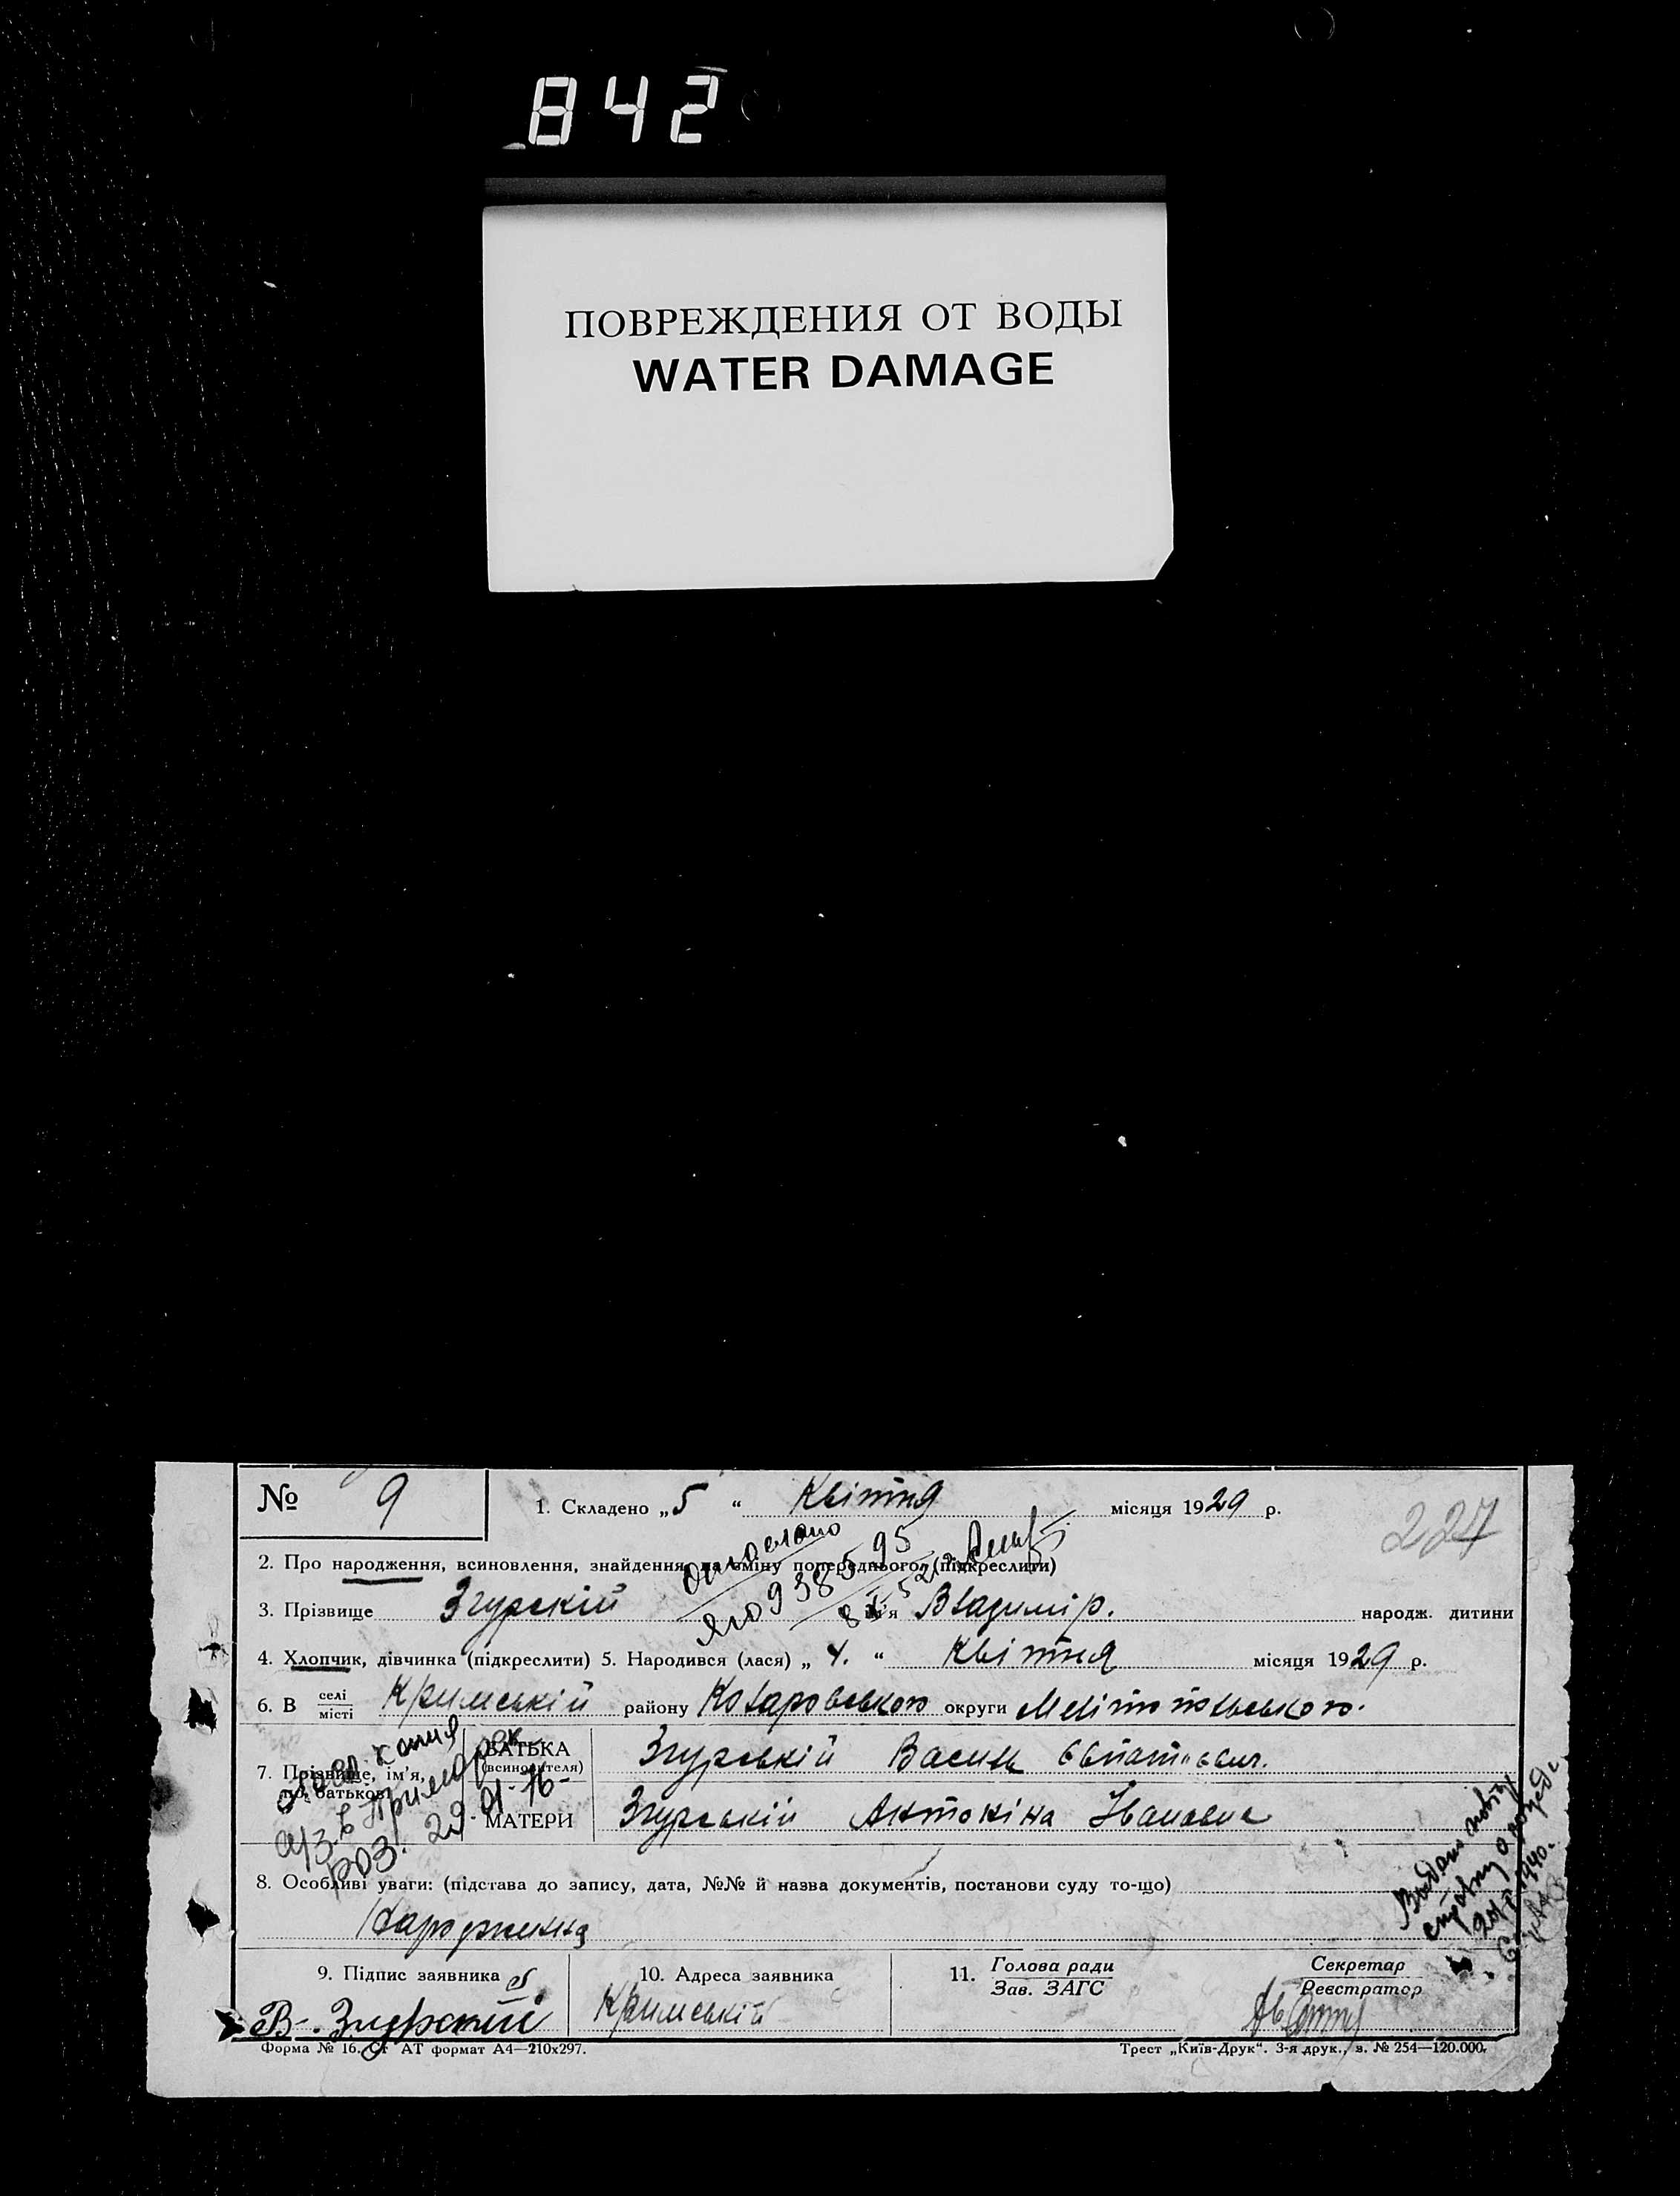 842
ПОВРЕЖДЕНИЯ ОТ ВОДЫ
WATER DAMAGE
№ 9
1. Складено „5“ Квітня місяця 1929 р.
227
2. Про народження, всиновлення, знайдення, на зміну попереднього (підкреслити)
3. Прізвище Згурскій ім'я Владимір. народж. дитини
4. Хлопчик, дівчинка (підкреслити) 5. Народився (лася) „4.“ Квітня місяця 1929 р.
6. В селі місті Кримській району Коларовського округи Мелітопольського.
7. Прізвище, ім'я, по батькові
БАТЬКА (всиновителя) Згурській Василь
МАТЕРИ Згурській Антоніна Івановна
8. Особливі уваги: (підстава до запису, дата, №№ й назва документів, постанови суду то-що)
9. Підпис заявника
В. Згурский
10. Адреса заявника
Кримській
11. Голова ради
Зав. ЗАГС
Секретар
Реєстратор
Форма № 16. Ст АТ формат А4—210х297.
Трест „Київ-Друк“. 3-я друк., з. № 254—120.000.